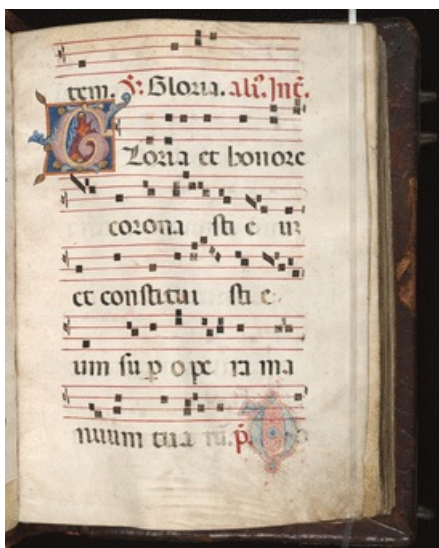 tem. ℣. Gloria. ali᷒. Int̄.
Gloria et honore
corona sti e um
et constitui sti e
um su p̱ o pe ra ma
nuum tua rū. p̄. D